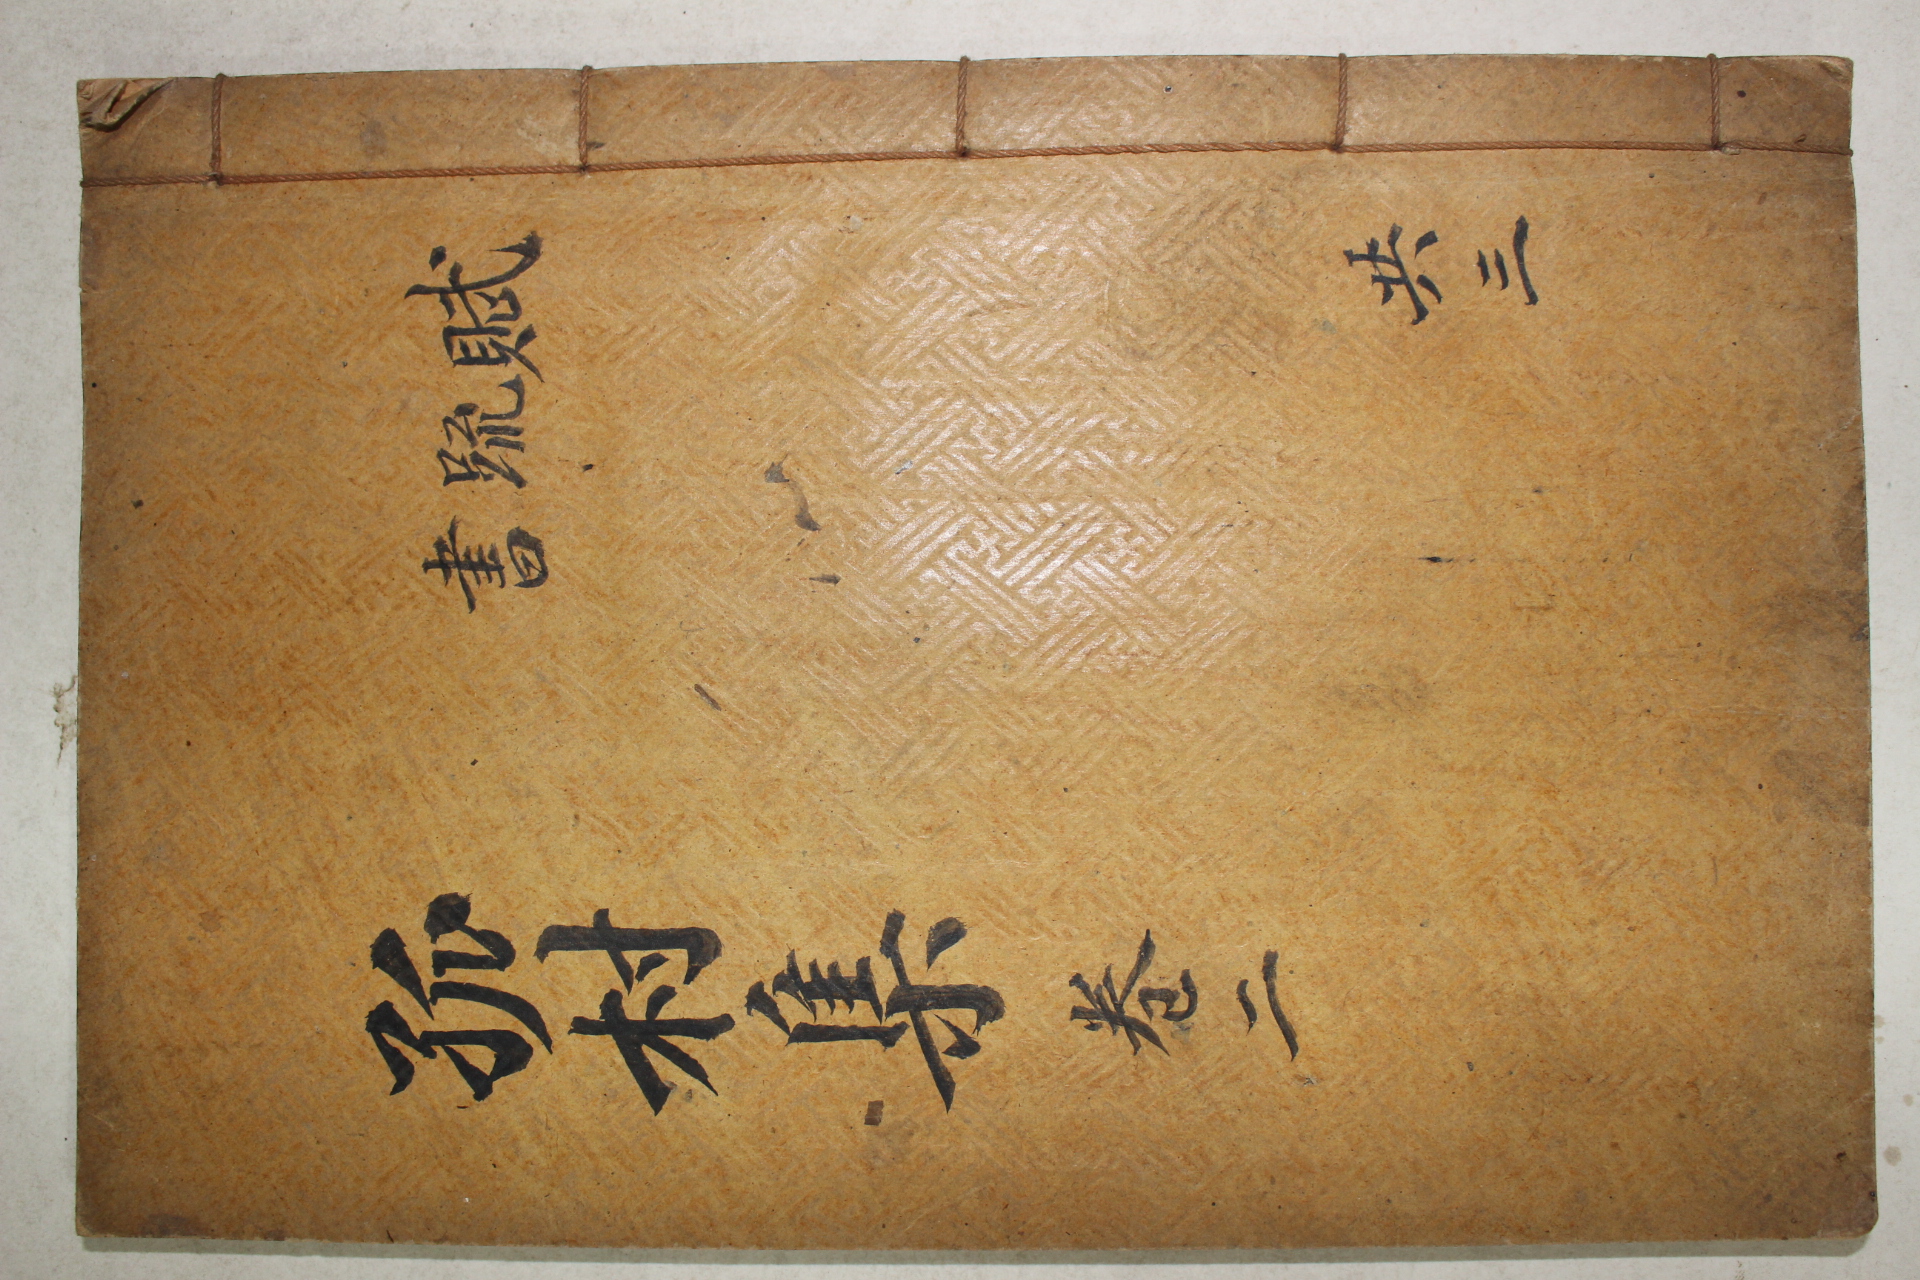 賦
疏
書
共三
孤村集 卷二